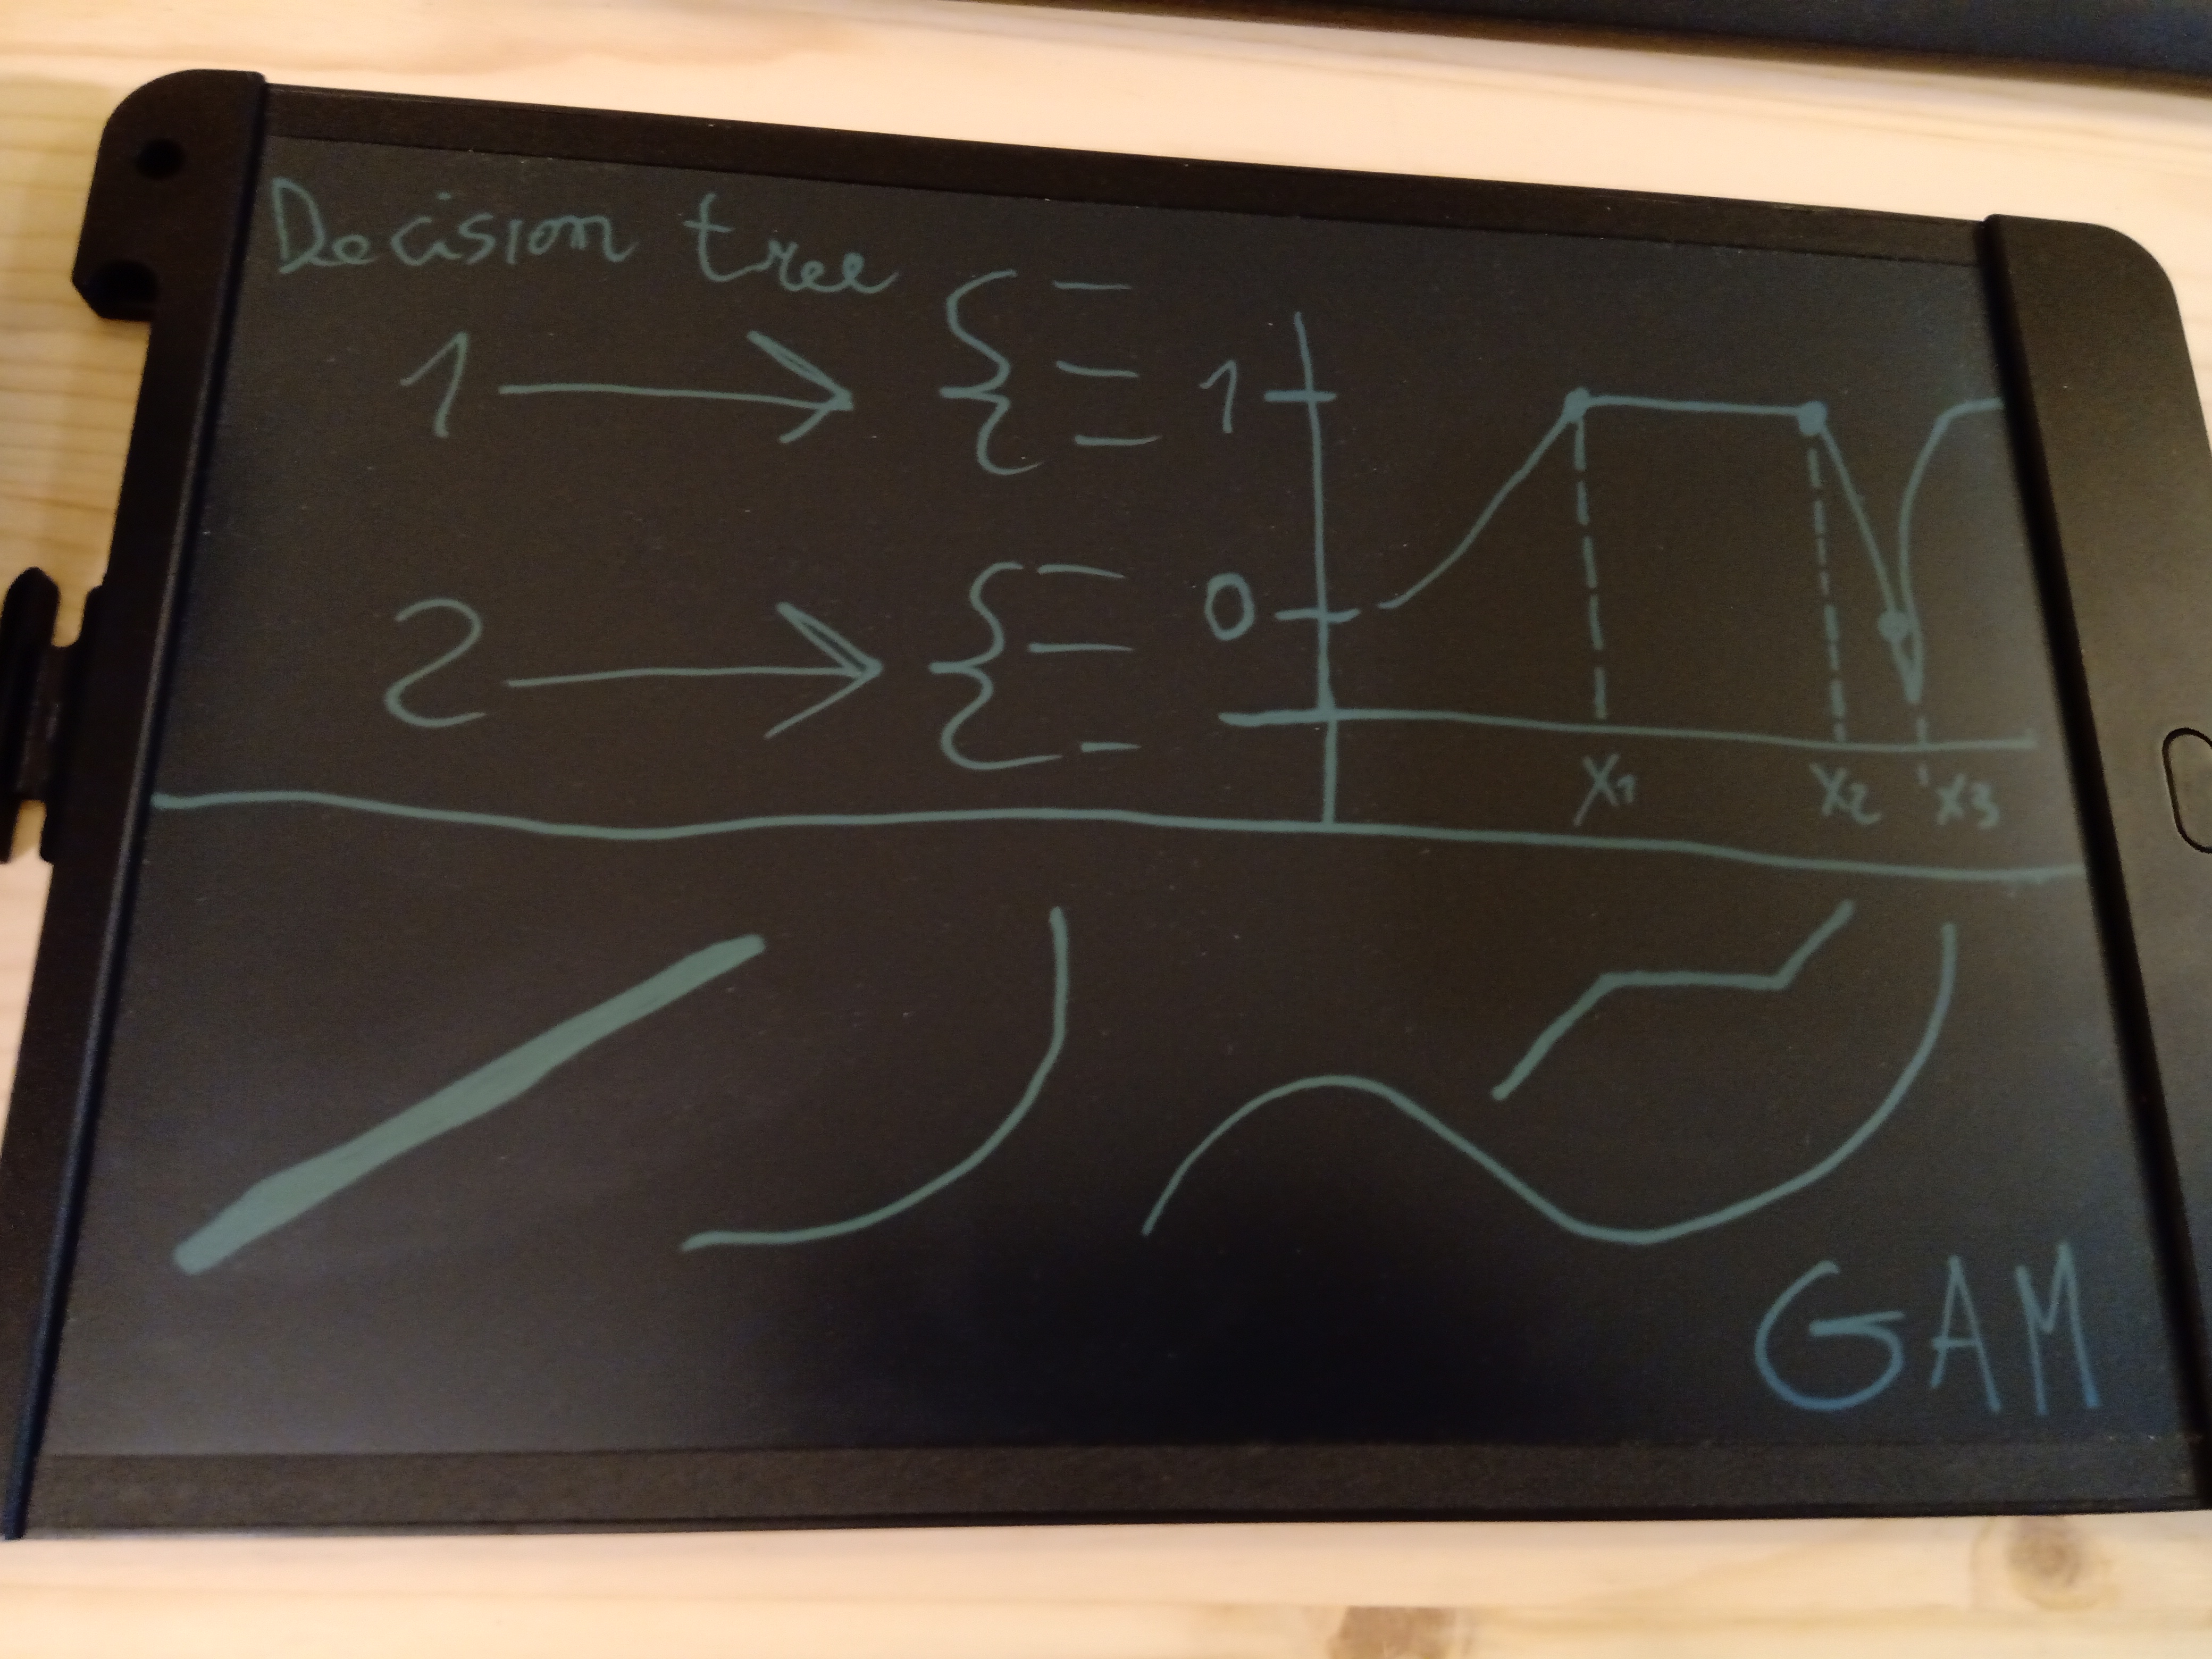 Decision tree
1
2
1
0
x1 x2 x3
GAM